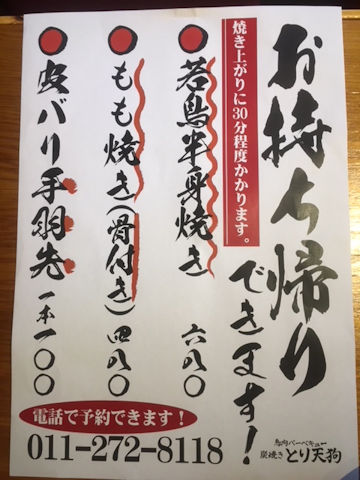 お持ち帰り
できます!
焼き上がりに30分程度かかります。
若鳥半身焼き 六八〇
もも焼き(骨付き)四八〇
皮バリ手羽先 一本一〇〇
電話で予約できます!
011-272-8118
鳥肉バーベキュー
炭焼き とり天狗